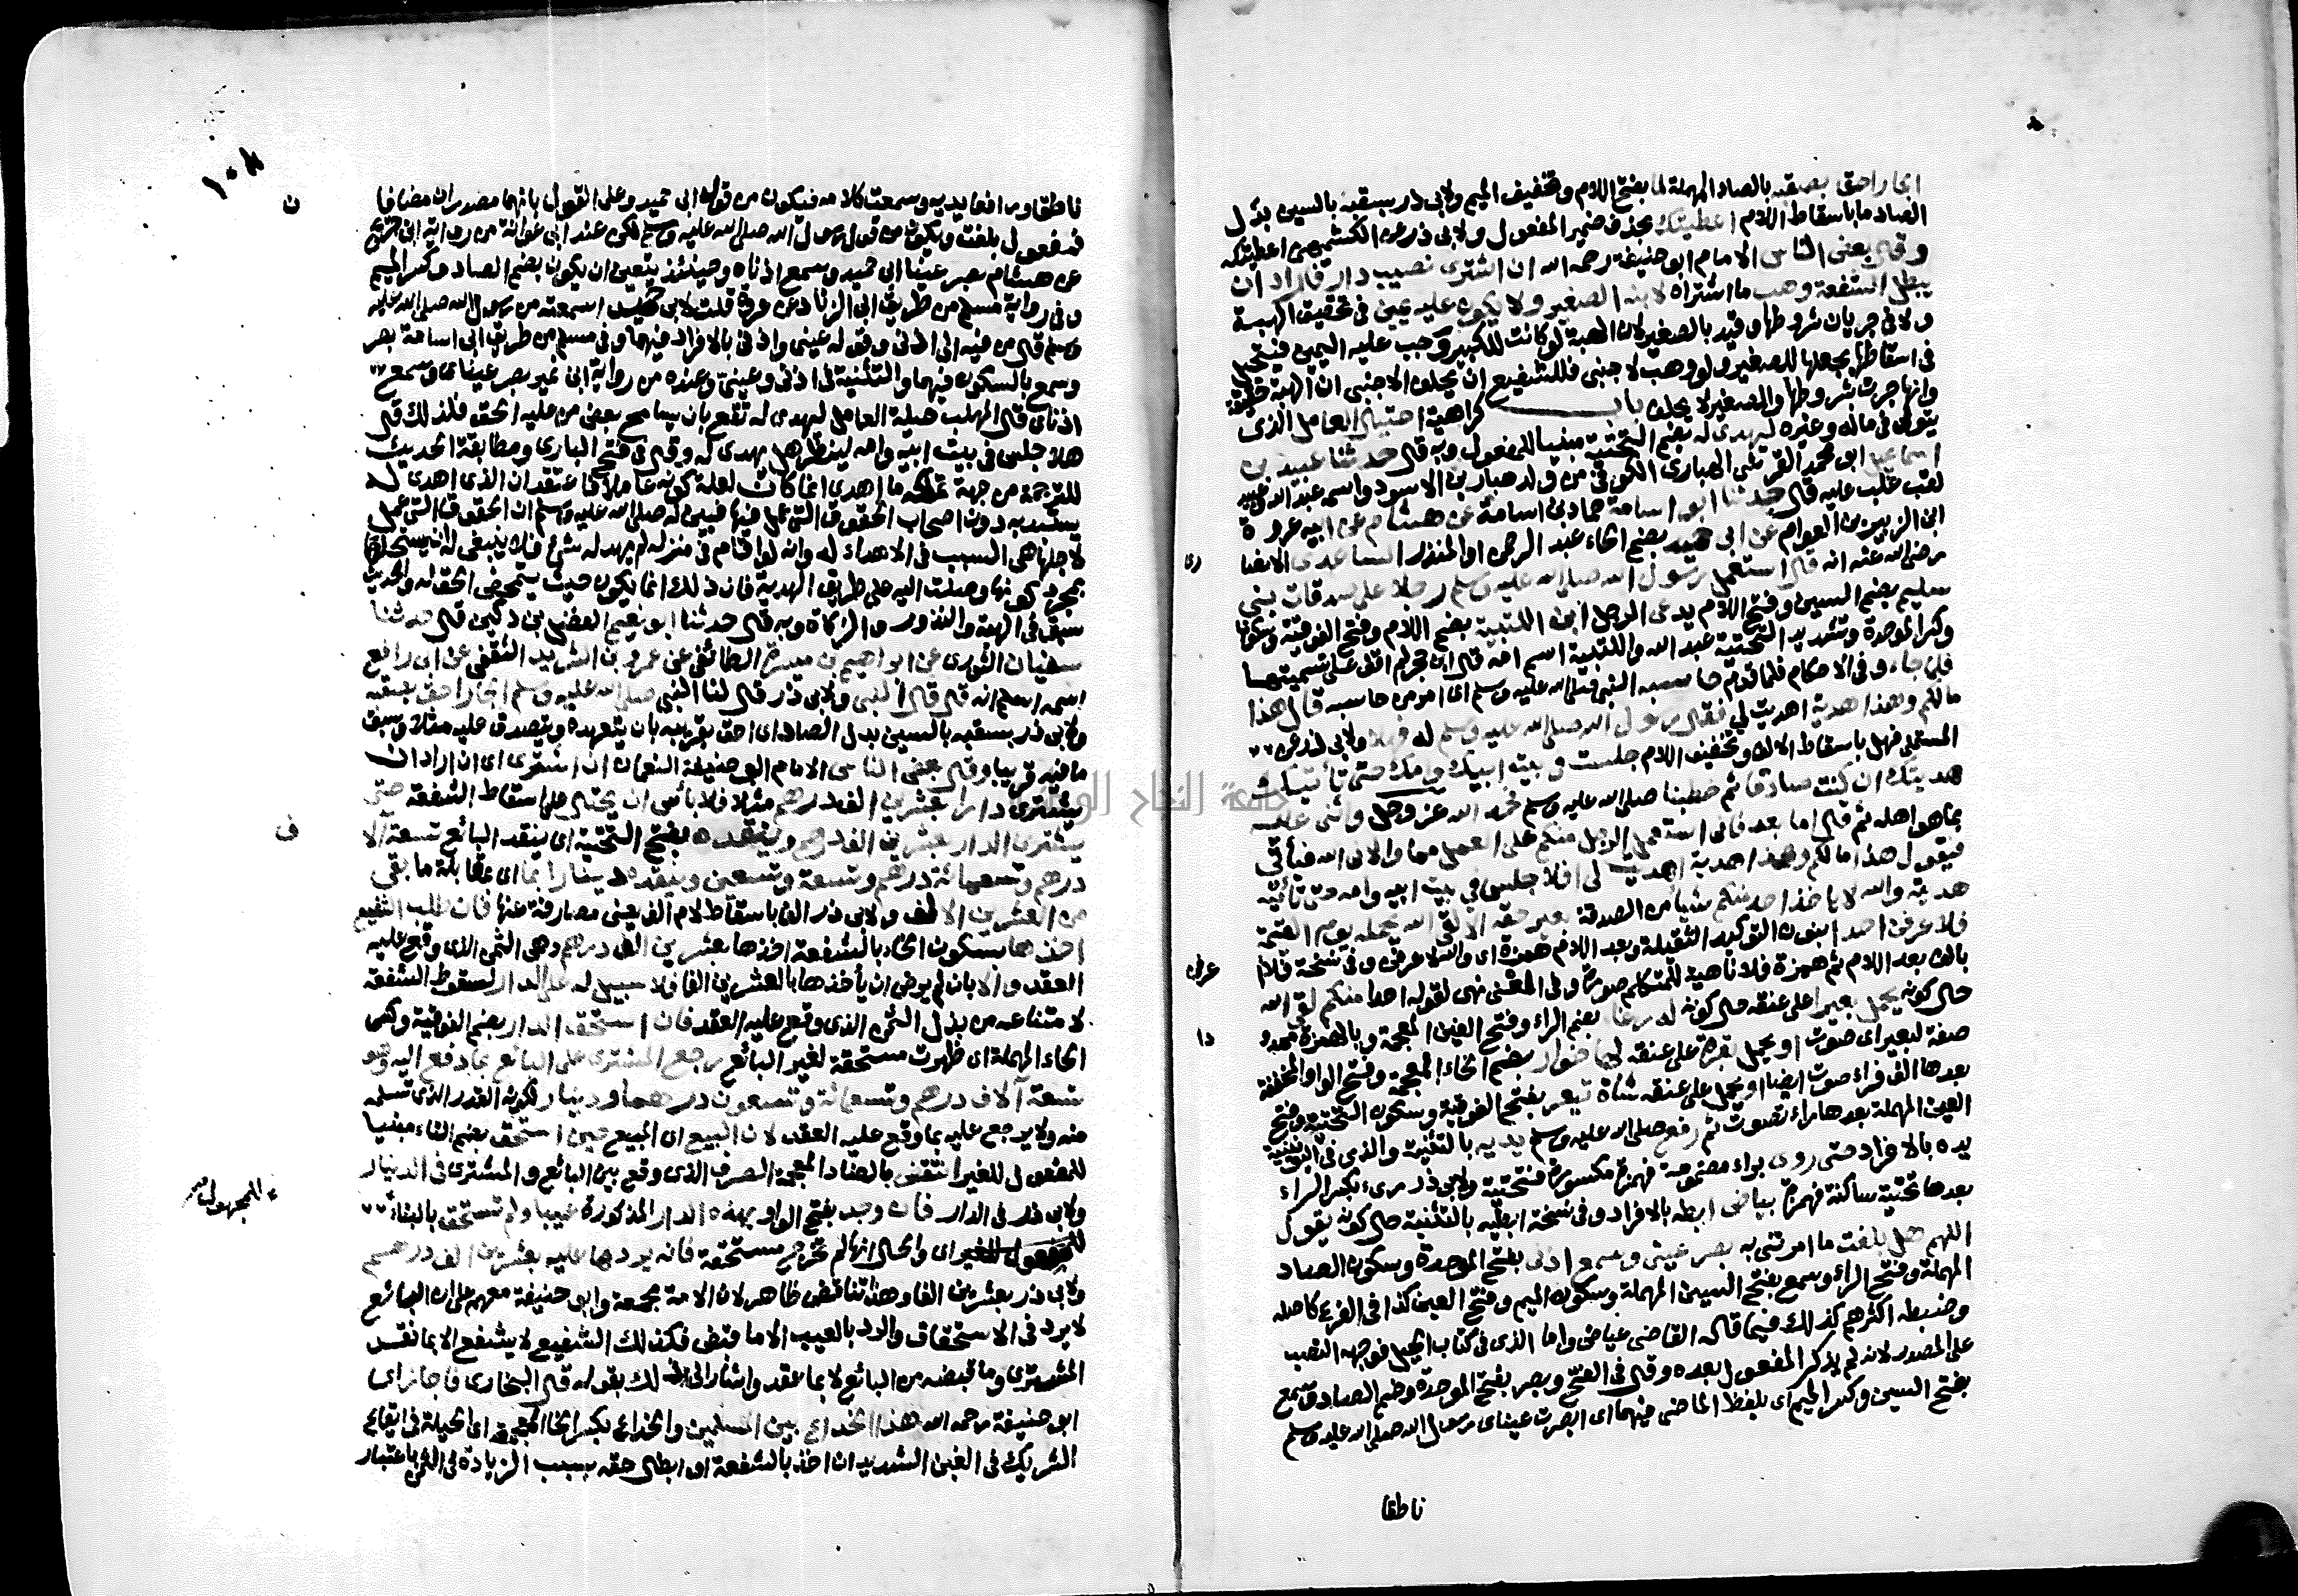 الجار احق بصقبه بالصاد المهملة لما بفتح اللام وتخفيف الميم ولابي ذر بسقبه بالسين بدل
الصاد ما باسقاط اللام اعطيتك بحذف ضمير المفعول ولابي ذر عن الكشميهني اعطيتكه
وقال بعض الناس الامام ابو حنيفة رحمه الله ان اشترى نصيب دار فاراد ان
يبطل الشفعة وهب ما اشتراه لابنه الصغير ولا يكون عليه يمين في تحقيق الهبة
ولا في جريان شروطها وقيد بالصغير لان الهبة لو كانت للكبير وجب عليه اليمين فيتحيل
في اسقاطها بجعلها للصغير ولو وهب لاجنبي فللشفيع ان يحلف الاجنبي ان الهبة حقيقة
وانها جرت شروطها والصغير لا يحلف باب كراهية احتيال العامل الذي
يتولى في ماله وغيره ليهدى له بضم التحتية مبنيا للمفعول وبه قال حدثنا عبيد بن
اسماعيل ابو محمد القرشي الهباري الكوفي من ولد هبار بن الاسود واسمه عبد الله وعبيد
لقب غلب عليه قال حدثنا ابو اسامة حماد بن اسامة عن هشام عن ابيه عروة
ابن الزبير بن العوام عن ابي حميد بضم الحاء عبد الرحمن او المنذر الساعدي الانصا
ري
رضي الله عنه انه قال استعمل رسول الله صلى الله عليه وسلم رجلا على صدقات بني
سليم بضم السين وفتح اللام يدعى الرجل ابن اللتبية بضم اللام وفتح الفوقية وسكونها
وكسر الموحدة وتشديد التحتية عبد الله واللتبية اسم امه قال ابن حجر لم اقف على تسميتها
فلما جاء وفي الاحكام فلما قدم حاسبه النبي صلى الله عليه وسلم اي امر من حاسبه قال هذا
مالكم وهذا هدية اهديت لي فقال رسول الله صلى الله عليه وسلم له فهلا ولابي ذر عن
المستملي فهل باسقاط الالف وتخفيف اللام جلست في بيت ابيك وامك حتى تأتيك
هديتك ان كنت صادقا ثم خطبنا صلى الله عليه وسلم فحمد الله عز وجل واثنى عليه
بما هو اهله ثم قال اما بعد فاني استعمل الرجل منكم على العمل مما ولاني الله فيأتي
فيقول هذا مالكم وهذا هدية اهديت لي افلا جلس في بيت ابيه وامه حتى تأتيه
هديته والله لا ياخذ احد منكم شيئا من الصدقة بغير حقه الا لقي الله يحمله يوم القيمة
فلا عرفن احدا بنون التوكيد الثقيلة وبعد اللام همزة اي والله لا عرفن وفي نسخة فلا
عرفن
بالف بعد اللام ثم همزة فلا ناهية للمتكلم صورة وفي المعنى نهي لقوله احدا منكم لقي الله
حال كونه يحمل بعيرا على عنقه حال كونه له رغاء بضم الراء وفتح الغين المعجمة وبالهمزة ممدو
دا
صفة لبعير اي صوت او يحمل بقرة على عنقه لها خوار بضم الخاء المعجمة وفتح الواو المخففة
بعدها الف فراء صوت ايضا او يحمل على عنقه شاة تيعر بفتح الفوقية وسكون التحتية وفتح
العين المهملة بعدها راء تصوت ثم رفع صلى الله عليه وسلم يديه بالتثنية والذي في اليونينية
يده بالافراد حتى روي براء مضمومة فهمزة مكسورة فتحتية ولابي ذر ريء بكسر الراء
بعدها تحتية ساكنة فهمزة بياض ابطه بالافراد وفي نسخة ابطيه بالتثنية حال كونه يقول
اللهم هل بلغت ما امرتني به بصر عيني وسمع اذني بفتح الموحدة وسكون الصاد
المهملة وفتح الراء وسمع بفتح السين المهملة وسكون الميم وفتح العين كذا في الفرع كاصله
وضبطه اكثرهم كذلك فيما قاله القاضي عياض واما الذي في كتاب الحيل فوجهه النصب
على المصدر لانه لم يذكر المفعول بعده وقال في الفتح وبصر بفتح الموحدة وضم الصاد وسمع
بفتح السين وكسر الميم اي بلفظ الماضي فيهما اي ابصرت عيناي رسول الله صلى الله عليه وسلم
ناطقا
١٠٨
ناطقا ورافعا يديه وسمعت كلامه فيكون من قول ابي حميد وعلى القول بانهما مصدران مضافا
ن
فمفعول بلغت ويكون من قول رسول الله صلى الله عليه وسلم لكن عند ابي عوانة من رواية ابن جريج
عن هشام بصر عينا ابي حميد وسمع اذناه وحينئذ يتعين ان يكون بضم الصاد وكسر الميم
وفي رواية مسلم من طريق ابي الزناد عن عروة قلت لابي حميد اسمعته من رسول الله صلى الله عليه
وسلم قال من فيه الى اذني وقوله عيني واذني بالافراد فيهما وفي مسلم من طريق ابي اسامة بصر
وسمع بالسكون فيهما والتثنية في اذني وعيني وعنده من رواية ابن نمير بصر عيناي وسمع
اذناي قال المهلب حيلة العامل ليهدى له تقع بان يسامح بعض من عليه الحق فلذلك قال
هلا جلس في بيت ابيه وامه لينظر هل يهدى له وقال في فتح الباري ومطابقة الحديث
للترجمة من جهة تملكه ما اهدي انما كان لعلة كونه عاملا فاعتقد ان الذي اهدي له
يستبد به دون اصحاب الحقوق التي عمل فيها فبين له صلى الله عليه وسلم ان الحقوق التي عمل
لاجلها هي السبب في الاهداء له وانه لو اقام في منزله لم يهد له شيء فلا ينبغي له ان يستحلها
بمجرد كونها وصلت اليه على طريق الهدية فان ذلك انما يكون حيث يتمحض الحق له والحديث
سبق في الهبة والنذور والزكاة وبه قال حدثنا ابو نعيم الفضل بن دكين قال حدثنا
سفيان الثوري عن ابراهيم بن ميسرة الطائفي عن عمرو بن الشريد الثقفي عن ابي رافع
اسمه اسلم انه قال قال النبي ولابي ذر قال لنا النبي صلى الله عليه وسلم الجار احق بصقبه
ولابي ذر بسقبه بالسين بدل الصاد اي احق بقريبه بان يتعهده ويتصدق عليه مثلا وسبق
ما فيه قريبا وقال بعض الناس الامام ابو حنيفة النعمان ان اشترى اي ان اراد ان
يشتري دارا بعشرين الف درهم مثلا فلا بأس ان يحتال على اسقاط الشفعة حتى
يشتري الدار بعشرين الف درهم وينقده بفتح التحتية اي ينقد البائع تسعة آلا
ف
درهم وتسعمائة درهم وتسعة وتسعين وينقده دينارا بما اي بمقابلة ما بقي
من العشرين الالف ولابي ذر الفا باسقاط لام الف يعني مصارفة عنها فان طلب الشفيع
اخذها بسكون الخاء بالشفعة اخذها بعشرين الف درهم وهي الثمن الذي وقع عليه
العقد والا بان لم يرض ان يأخذها بالعشرين الفا فلا سبيل له على الدار لسقوط الشفعة
لامتناعه من بذل الثمن الذي وقع عليه العقد فان استحقت الدار بضم الفوقية وكسر
الحاء المهملة اي ظهرت مستحقة لغير البائع رجع المشتري على البائع بما دفع اليه وهو
تسعة آلاف درهم وتسعمائة وتسعون درهما ودينار لكونه القدر الذي تسلمه
منه ولا يرجع عليه بما وقع عليه العقد لان البيع اي المبيع حين استحق بضم التاء مبنيا
للمفعول للغير انتقض بالضاد المعجمة الصرف الذي وقع بين البائع والمشتري في الدينار
للمجهول
ولابي ذر في الدار فان وجد بفتح الواو بهذه الدار المذكورة عيبا ولم تستحق بالبناء
للغير اي والحال انها لم تخرج مستحقة فانه يردها عليه بعشرين الف درهم
ولابي ذر بعشرين الفا وهذا تناقض ظاهر لان الامة مجمعة وابو حنيفة معهم على ان البائع
لا يرد في الاستحقاق والرد بالعيب الا ما قبض فكذلك الشفيع لا يشفع الا بما نقد
المشتري وما قبضه من البائع لا بما عقد واشار الى ذلك بقوله قال البخاري فاجاز اي
ابو حنيفة رحمه الله هذا الخداع بين المسلمين والخداع بكسر الخاء المعجمة اي الحيلة في ايقاع
الشريك في الغبن الشديد ان اخذ بالشفعة او ابطال حقه بسبب الزيادة في الثمن باعتبار